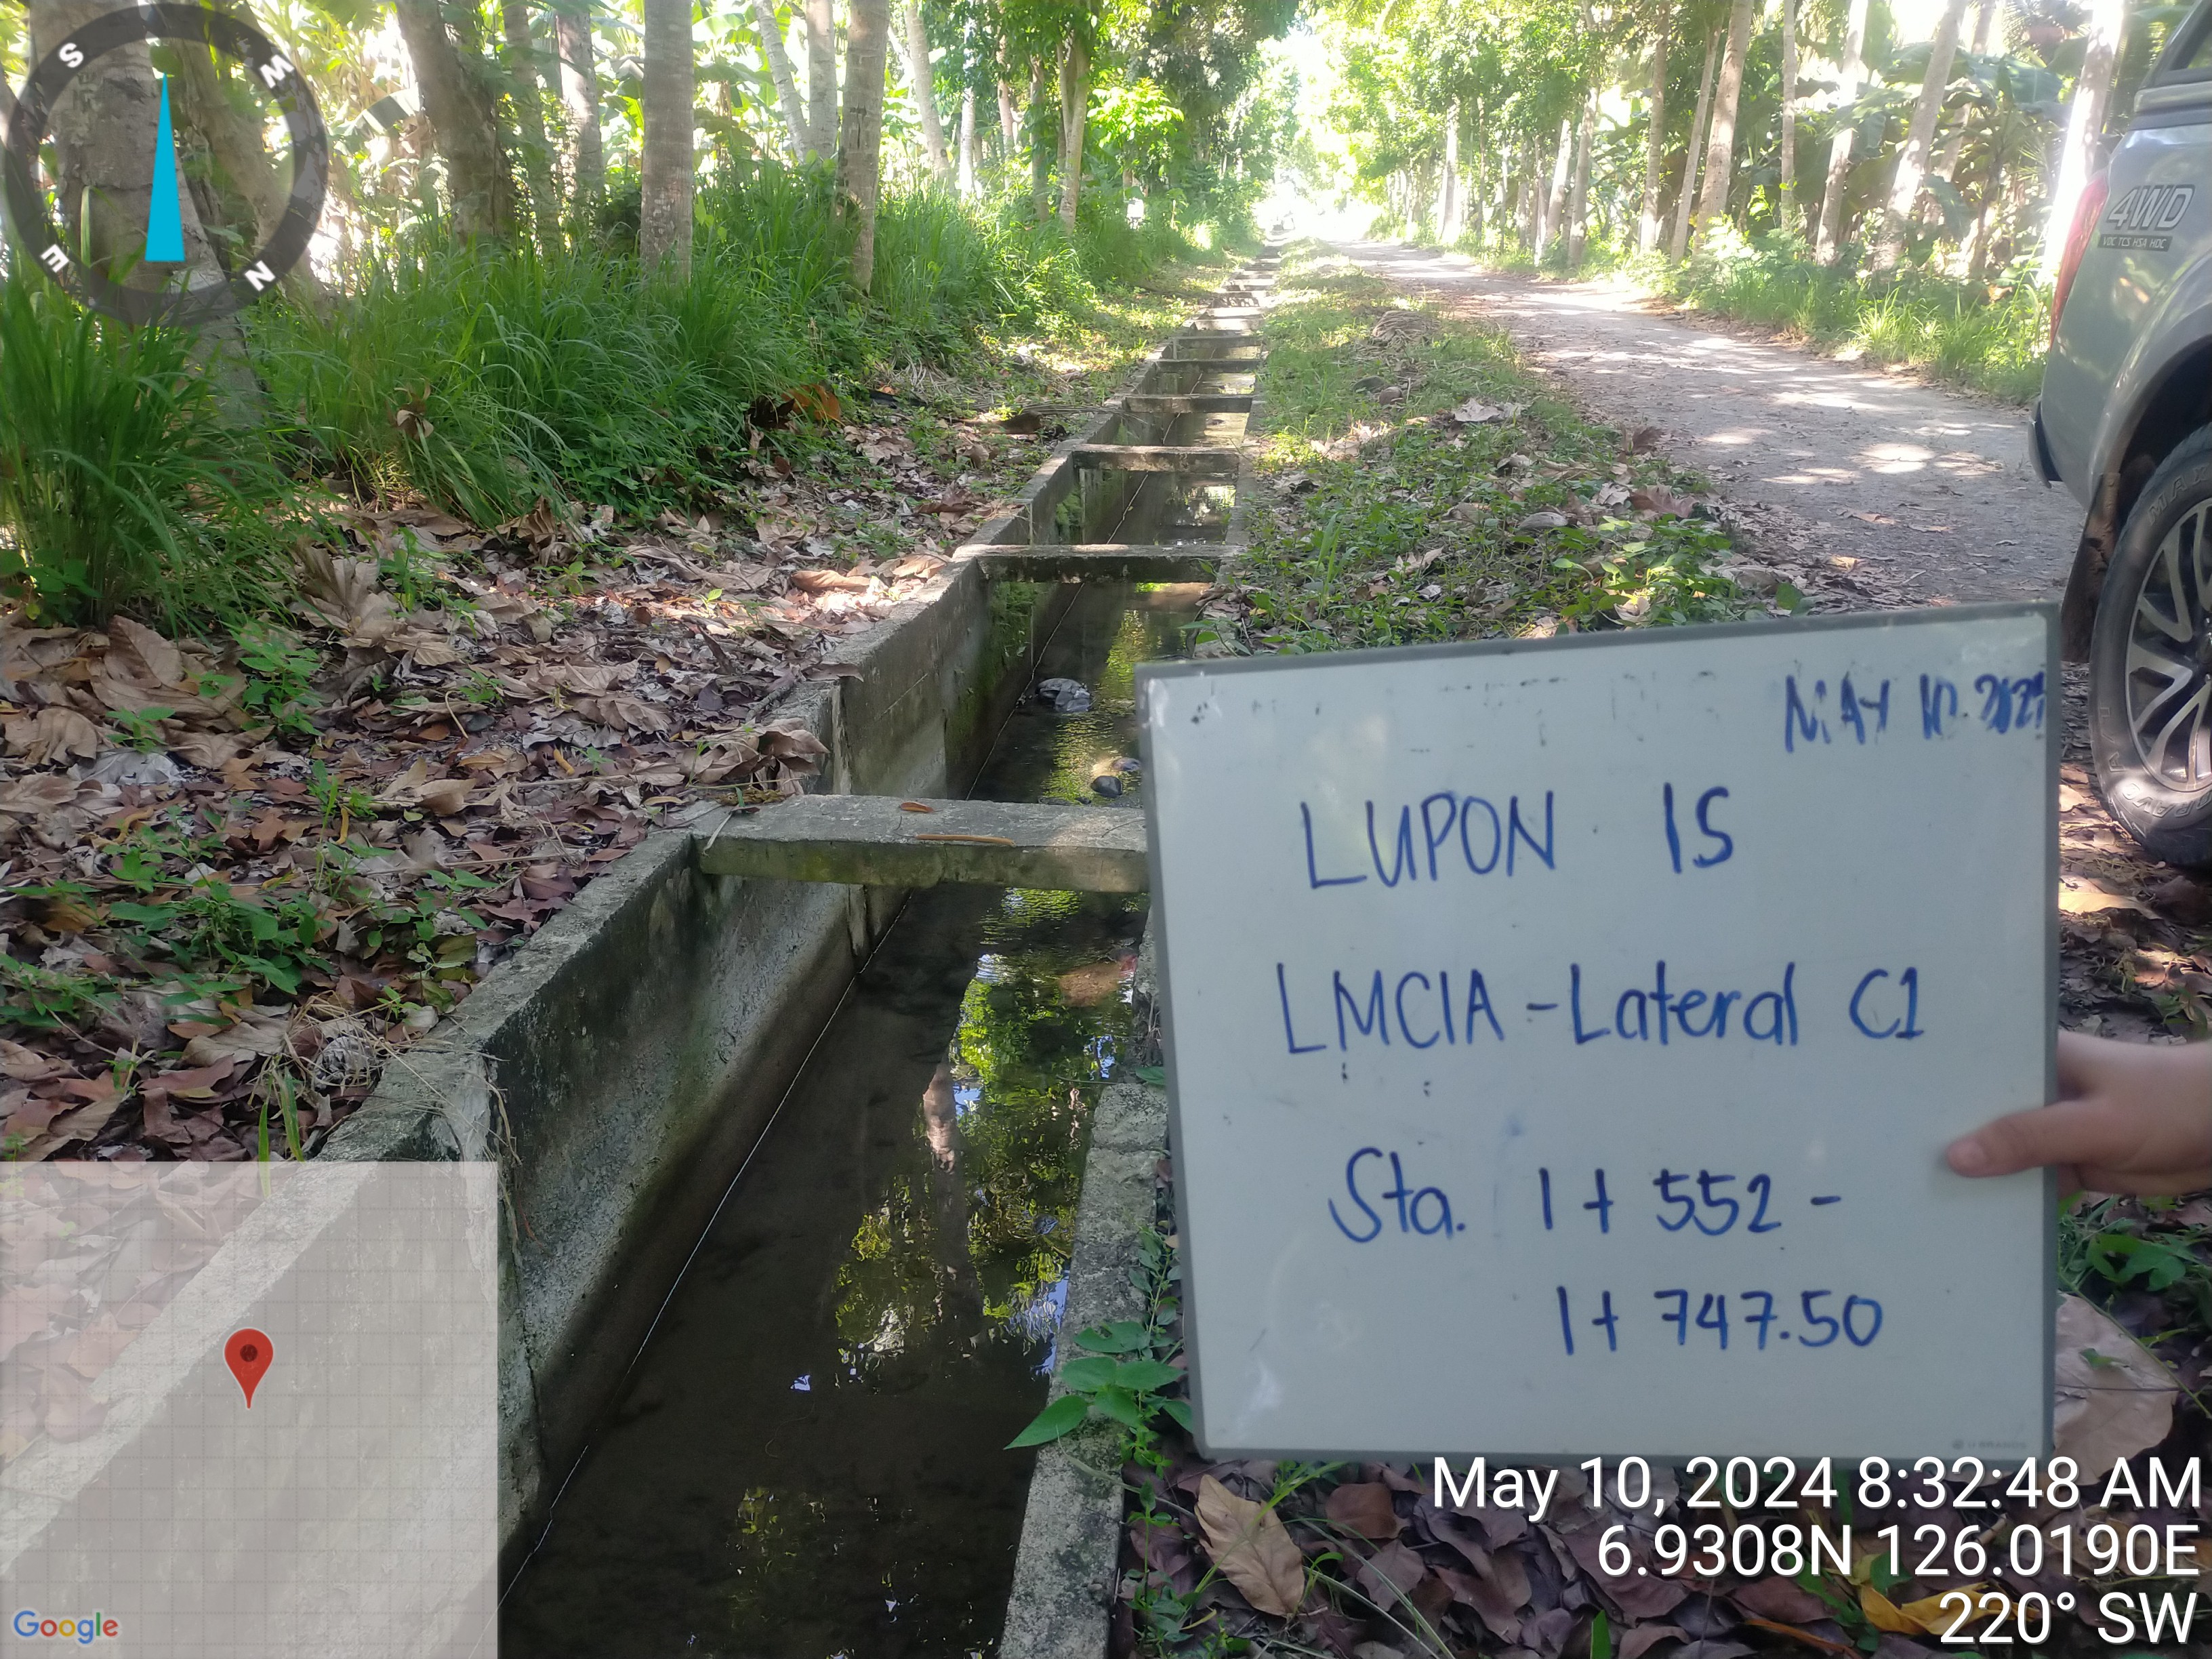 S
W
E
N
4WD
VDC TCS HSA HDC
MAY 10. 2024
LUPON IS
LMCIA - Lateral C1
Sta. 1 + 552 -
1 + 747.50
May 10, 2024 8:32:48 AM
6.9308N 126.0190E
220° SW
Google